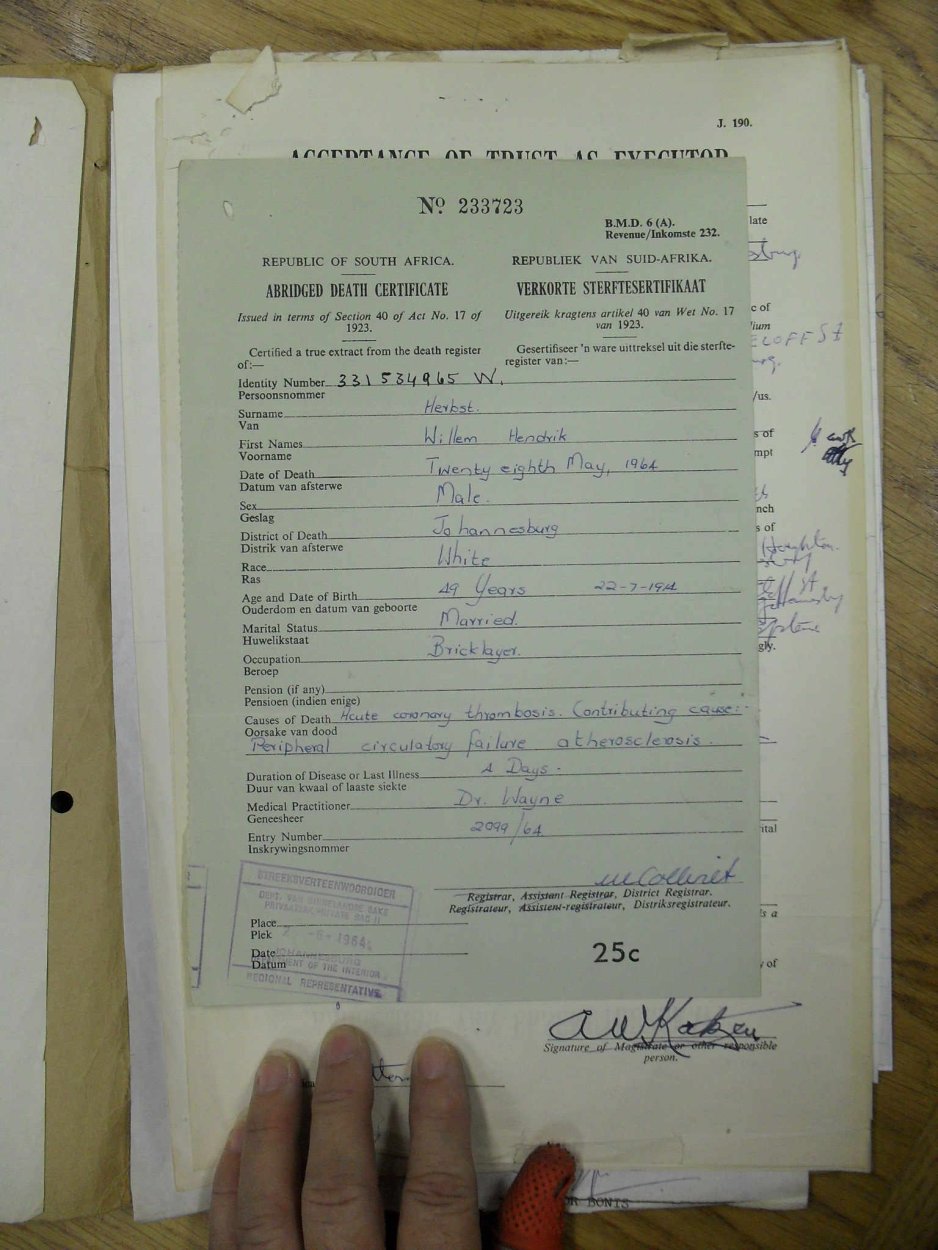 J. 190.
ACCEPTANCE OF TRUST AS EXECUTOR
No 233723
B.M.D. 6 (A).
Revenue/Inkomste 232.
REPUBLIC OF SOUTH AFRICA.
REPUBLIEK VAN SUID-AFRIKA.
ABRIDGED DEATH CERTIFICATE
VERKORTE STERFTESERTIFIKAAT
Issued in terms of Section 40 of Act No. 17 of
1923.
Uitgereik kragtens artikel 40 van Wet No. 17
van 1923.
Certified a true extract from the death register
of:—
Gesertifiseer 'n ware uittreksel uit die sterfte-
register van:—
Identity Number 331534965 W.
Persoonsnommer
Surname Herbst.
Van
First Names Willem Hendrik
Voorname
Date of Death Twenty eighth May, 1964
Datum van afsterwe
Sex Male.
Geslag
District of Death Johannesburg
Distrik van afsterwe
Race White
Ras
Age and Date of Birth 49 Years 22-7-1914
Ouderdom en datum van geboorte
Marital Status Married.
Huwelikstaat
Occupation Bricklayer.
Beroep
Pension (if any)
Pensioen (indien enige)
Causes of Death Acute coronary thrombosis. Contributing cause:-
Oorsake van dood
Peripheral circulatory failure atherosclerosis.
Duration of Disease or Last Illness 4 Days.
Duur van kwaal of laaste siekte
Medical Practitioner Dr. Wayne
Geneesheer
Entry Number 2099/64
Inskrywingsnommer
Registrar, Assistant Registrar, District Registrar.
Registrateur, Assistent-registrateur, Distriksregistrateur.
STREEKSVERTEENWOORDIGER
DEPT. VAN BINNELANDSE SAKE
PRIVAATSAK/PRIVATE BAG 11
-6-1964
JOHANNESBURG
DEPARTMENT OF THE INTERIOR
REGIONAL REPRESENTATIVE
Place
Plek
Date
Datum
25c
Signature of Magistrate or other responsible
person.
late
c of
/us.
s of
nch
s of
gly.
is a
y of
OR BONIS